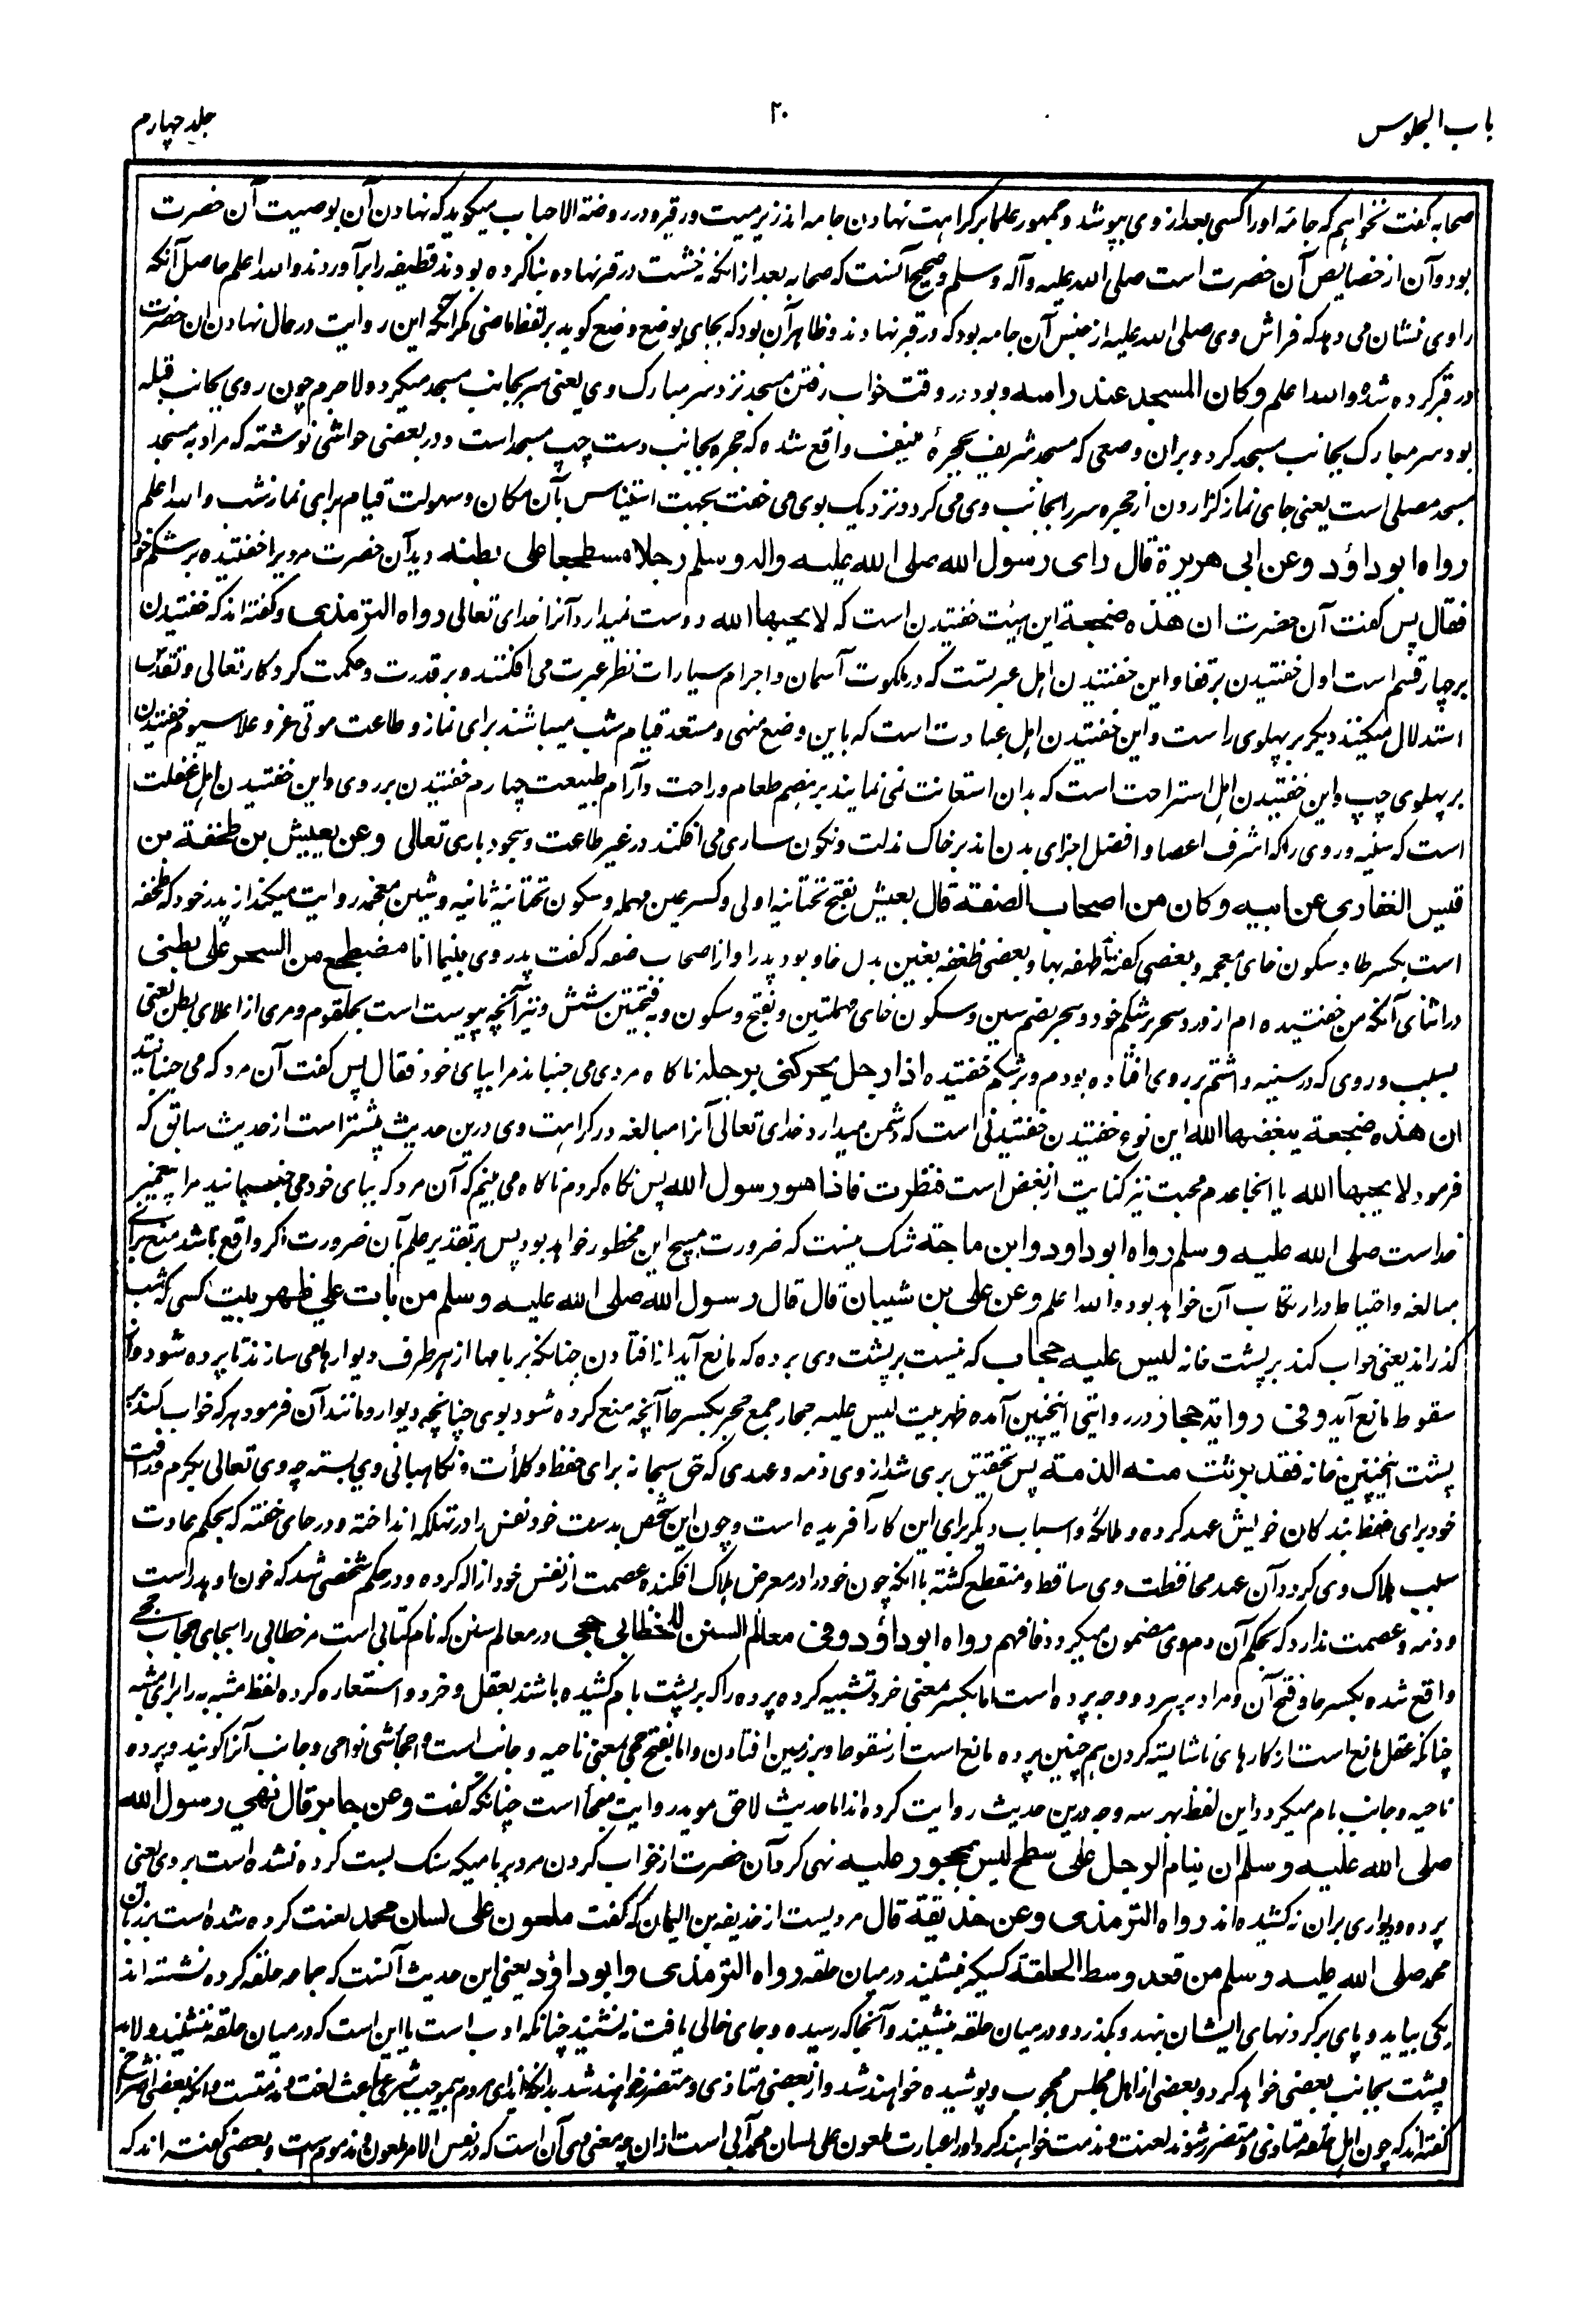 باب الجلوس
۲۰
جلد چهارم
صحابه گفت نخواهم که جامهٔ او را کسی بعد از وی بپوشد و جمهور علما بر کراهت نهادن جامه اند زیر میت در قبر و در روضة الاحباب میگوید که نهادن آن بوصیت آن حضرت
بود و آن از خصایص آن حضرت است صلی الله علیه وآله وسلم و صحیح آنست که صحابه بعد از انکه خشت در قبر نهاده بنا کرده بودند قطیفه را برآوردند والله اعلم حاصل آنکه
راوی نشان می دهد که فراش وی صلی الله علیه از جنس آن جامه بود که در قبر نهادند و ظاهر آن بود که بجای یوضع وضع گوید بر لفظ ماضی مگر آنکه این روایت در حال نهادن ان حضرت
در قبر کرده شده والله اعلم وکان المسجد عند راسه و بود در وقت خواب رفتن مسجد نزد سر مبارک وی یعنی سر بجانب مسجد میکرد و لا جرم چون روی بجانب قبله
بود سر مبارک بجانب مسجد کرد و بران وضعی که مسجد شریف بحجرهٔ منیف واقع شده که حجره بجانب دست چپ مسجد است و در بعضی حواشی نوشته که مراد به مسجد
مسجد مصلی است یعنی جای نماز گزاردن از حجره سر را بجانب وی می کرد و نزدیک بوی می خفت بجهت استیناس بآن مکان و سهولت قیام برای نماز شب والله اعلم
رواه ابو داؤد وعن ابی هریرة قال رای رسول الله صلی الله علیه واله وسلم رجلا مسطجعا علی بطنه دید آن حضرت مردیرا خفتیده بر شکم خود
فقال پس گفت آن حضرت ان هذه ضجعة این هیئت خفتیدن است که لا یحبها الله دوست نمیدارد آنرا خدای تعالی رواه الترمذی و گفته اند که خفتیدن
بر چهار قسم است اول خفتیدن بر قفا و این خفتیدن اهل عبرتست که در ملکوت آسمان و اجرام سیارات نظر عبرت می افکنند و بر قدرت و حکمت کردگار تعالی و تقدس
استدلال میکنند دیگر بر پهلوی راست و این خفتیدن اهل عبادت است که باین وضع منهی و مستعد قیام شب میباشند برای نماز و طاعت مولی عز و علا سیوم خفتیدن
بر پهلوی چپ و این خفتیدن اهل استراحت است که بدان استعانت می نمایند بر هضم طعام و راحت و آرام طبیعت چهارم خفتیدن بر روی و این خفتیدن اهل غفلت
است که سینه و روی را که اشرف اعضا و افضل اجزای بدن اند بر خاک مذلت و نگون ساری می افکنند در غیر طاعت و سجود باری تعالی وعن یعیش بن طخفة بن
قیس الغفاری عن ابیه وکان من اصحاب الصفة قال یعیش بفتح تحتانیه اولی و کسر عین مهمله و سکون تحتانیه ثانیه و شین معجمه روایت میکند از پدر خود که طخفه
است بکسر طا و سکون خای معجمه و بعضی گفته اند طهفه بها و بعضی طغفه بغین بدل خا و بود پدر او از اصحاب صفه که گفت پدر وی بینما انا مضطجع من السحر علی بطنی
در اثنای آنکه من خفتیده ام از درد سحر بر شکم خود و سحر بضم سین و سکون حای مهملتین و بفتح و سکون و بفتحتین شش و نیز آنچه پیوست است بحلقوم و مری از اعلای بطن یعنی
بسبب دردی که در سینه داشتم بر روی افتاده بودم و بر شکم خفتیده اذا رجل یحرکنی برجله ناگاه مردی می جنباند مرا بپای خود فقال پس گفت آن مرد که می جنبانید
ان هذه ضجعة یبغضها الله این نوع خفتیدن خفتیدنی است که دشمن میدارد خدای تعالی آنرا مبالغه در کراهت وی درین حدیث بیشتر است از حدیث سابق که
فرمود لا یحبها الله یا انجا عدم محبت نیز کنایت از بغض است فنظرت فاذا هو رسول الله پس نگاه کردم ناگاه می بینم که آن مرد که بپای خود می جنبانید مرا پیغمبر
خداست صلی الله علیه وسلم رواه ابو داود وابن ماجة شک نیست که ضرورت مبیح این محظور خواهد بود پس بر تقدیر علم بآن ضرورت اگر واقع باشد منع برای
مبالغه و احتیاط در ارتکاب آن خواهد بود والله اعلم وعن علی بن شیبان قال قال رسول الله صلی الله علیه وسلم من بات علی ظهر بیت کسی که شب
گذراند یعنی خواب کند بر پشت خانه لیس علیه حجاب که نیست بر پشت وی پرده که مانع آید از افتادن چنانکه بر بامها از هر طرف دیوارها می سازند تا پرده شود و از
سقوط مانع آید وفی روایة حجار در روایتی اینچنین آمده ظهر بیت لیس علیه حجار جمع حجر بکسر حا آنچه منع کرده شود بوی چنانچه دیوار و مانند آن فرمود هر که خواب کند بر
پشت اینچنین خانه فقد برئت منه الذمة پس تحقیق بری شد از وی ذمه و عهدی که حق سبحانه برای حفظ و کلأت و نگاهبانی وی بسته چه وی تعالی بکرم و رافت
خود برای حفظ بندگان خویش عهد کرده و ملائکه و اسباب دیگر برای این کار آفریده است و چون این شخص بدست خود نفس را در تهلکه انداخته و در جای خفته که بحکم عادت
سبب هلاک وی گردد آن عهد محافظت وی ساقط و منقطع گشته یا انکه چون خود را در معرض هلاک افکنده عصمت از نفس خود ازاله کرده و در حکم شخصی شد که خون او هدر است
و ذمه و عصمت ندارد که بحکم آن دموی مضمون میگردد فافهم رواه ابو داؤد وفی معالم السنن للخطابی حجی در معالم سنن که نام کتابی است مر خطابی را بجای حجاب حجی
واقع شده بکسر حا و فتح آن و مراد بهر دو وجه پرده است اما بکسر معنی خرد تشبیه کرده پرده را که بر پشت بام کشیده باشند بعقل و خرد و استعاره کرده لفظ مشبه به را برای مشبه
چنانکه عقل مانع است از کارهای ناشایسته کردن هم چنین پرده مانع است از سقوط و بر زمین افتادن و اما بفتح حجی بمعنی ناحیه و جانب است و احجاء شی نواحی و جانب آنرا گویند و پرده
ناحیه و جانب بام میگردد و این لفظ بهر سه وجه درین حدیث روایت کرده اند اما حدیث لاحق موید روایت حجا است چنانکه گفت وعن جابر قال نهی رسول الله
صلی الله علیه وسلم ان ینام الرجل علی سطح لیس بمحجور علیه نهی کرد آن حضرت از خواب کردن مرد بر بامیکه سنگ بست کرده نشده است بر وی یعنی
پرده و دیواری بران نه کشیده اند رواه الترمذی وعن حذیفة قال مرویست از حذیفه بن الیمان که گفت ملعون علی لسان محمد لعنت کرده شده است بر زبان
محمد صلی الله علیه وسلم من قعد وسط الحلقة کسیکه بنشیند در میان حلقه رواه الترمذی وابو داؤد یعنی این حدیث آنست که جماعه حلقه کرده نشسته اند
یکی بیاید و پای بر گردنهای ایشان بنهد و بگذرد و در میان حلقه بنشیند و آنجا که رسیده و جای خالی یافت نه نشیند چنانکه ادب است یا این است که در میان حلقه بنشیند و لابد
پشت بجانب بعضی خواهد کرد و بعضی از اهل مجلس محجوب و پوشیده خواهند شد و از بعضی متاذی و متضرر خواهند شد بدانکه ایذای مردم بی موجب شرعی باعث لعنت و مذمتست و آنکه بعضی شراح
گفته اند که چون اهل حلقه متاذی و متضرر شوند لعنت و مذمت خواهند کرد او را عبارت ملعون علی لسان محمد آبی است ازان چه معنی وی آن است که در نفس الامر ملعون و مذموم است و بعضی گفته اند که